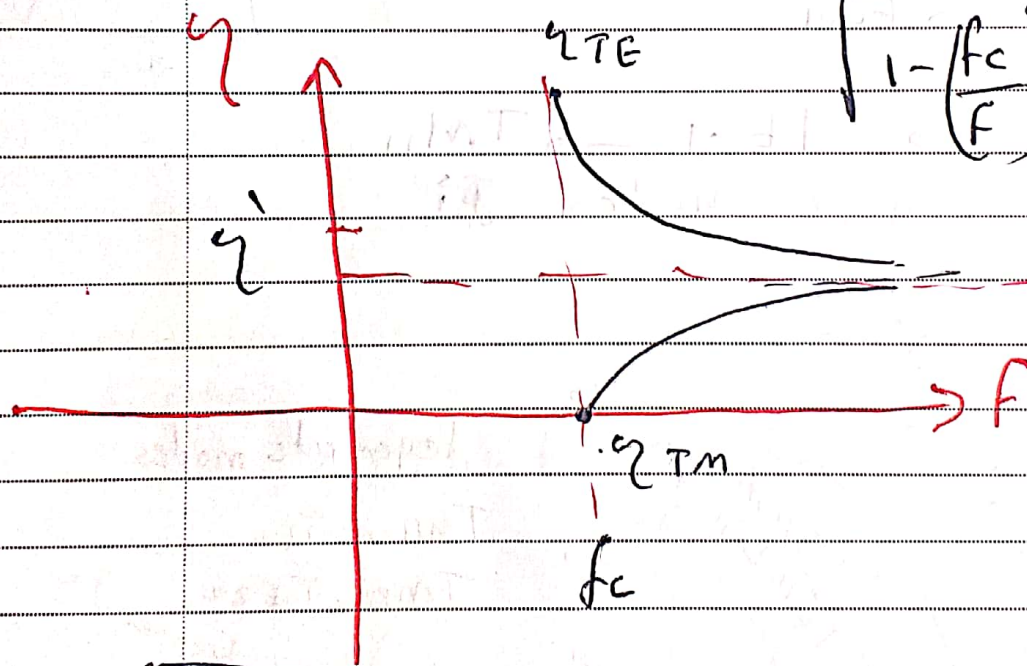 η
η TE
1 - (fc
F
η'
F
η TM
fc